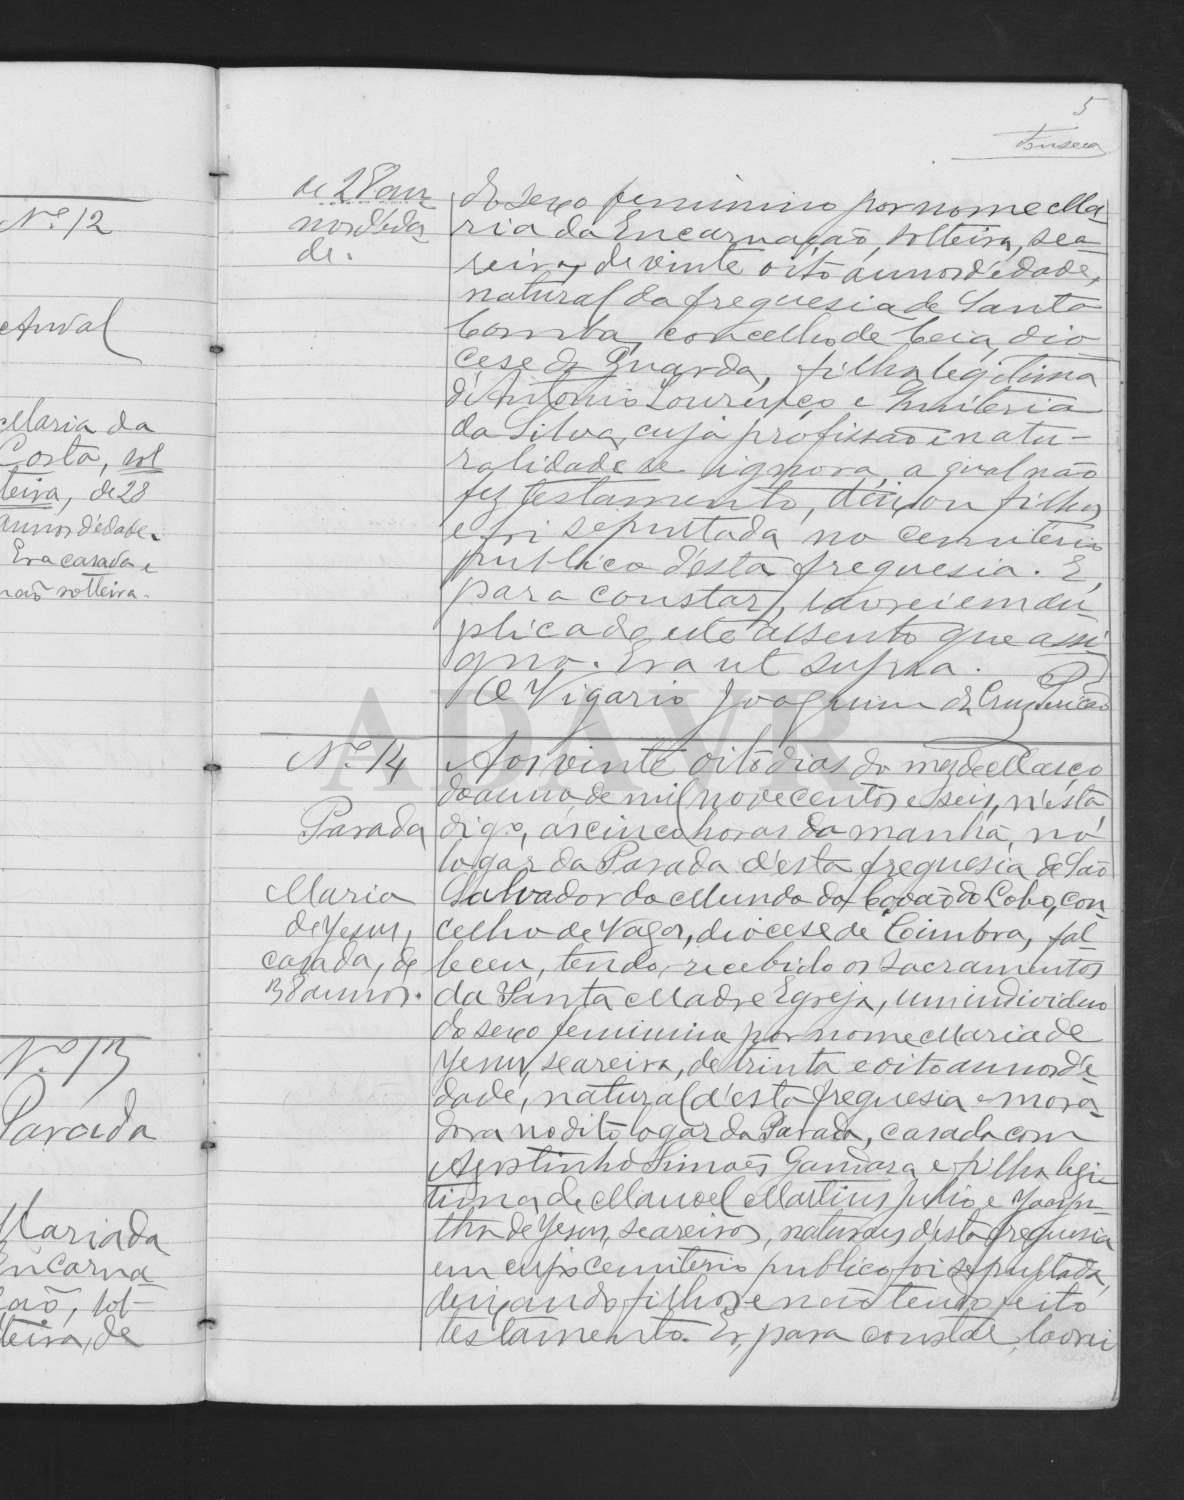 5
Fonseca
Nº 12
Maria da
Costa, sol
teira, de 28
annos d'edade.
Era casada e
não solteira.
Nº 13
Parada
Maria da
Encarna
ção, sol-
teira, de
de 28 an
nos d'eda
de.
do sexo feminino por nome Ma
ria da Encarnação, solteira, sea
reira, de vinte oito annos d'edade,
natural da freguesia de Santa
Comba, concelho de Ceia, dio
cese da Guarda, filha legitima
d'Antonio Lourenço e Quiteria
da Silva, cuja profissão e natu-
ralidade se ignora, a qual não
fez testamento, deixou filhos
e foi sepultada no cemiterio
publico d'esta freguesia. E,
para constar, lavrei em du
plicado este assento que assi
gno. Era ut supra.
O Vigario Joaquim da Cruz
Nº 14
Parada
Maria
de Jesus,
casada, de
38 annos.
Aos vinte oito dias do mez de Março
do anno de mil novecentos e seis, n'esta
digo, ás cinco horas da manhã, no
logar da Parada d'esta freguesia de São
Salvador do Mundo da Covão do Lobo, con
celho de Vagos, diocese de Coimbra, fal
leceu, tendo recebido os sacramentos
da Santa Madre Egreja, um individuo
do sexo feminino por nome Maria de
Jesus, seareira, de trinta e oito annos d'e
dade, natural d'esta freguesia e mora
dora no dito logar da Parada, casada com
Agostinho Simões e filha legi
tima de Manoel Martins Julio e Jacin
tha de Jesus, seareiros, naturaes d'esta freguesia
em cujo cemiterio publico foi sepultada,
deixando filhos e não tendo feito
testamento. E, para constar, lavrei
ADAVR